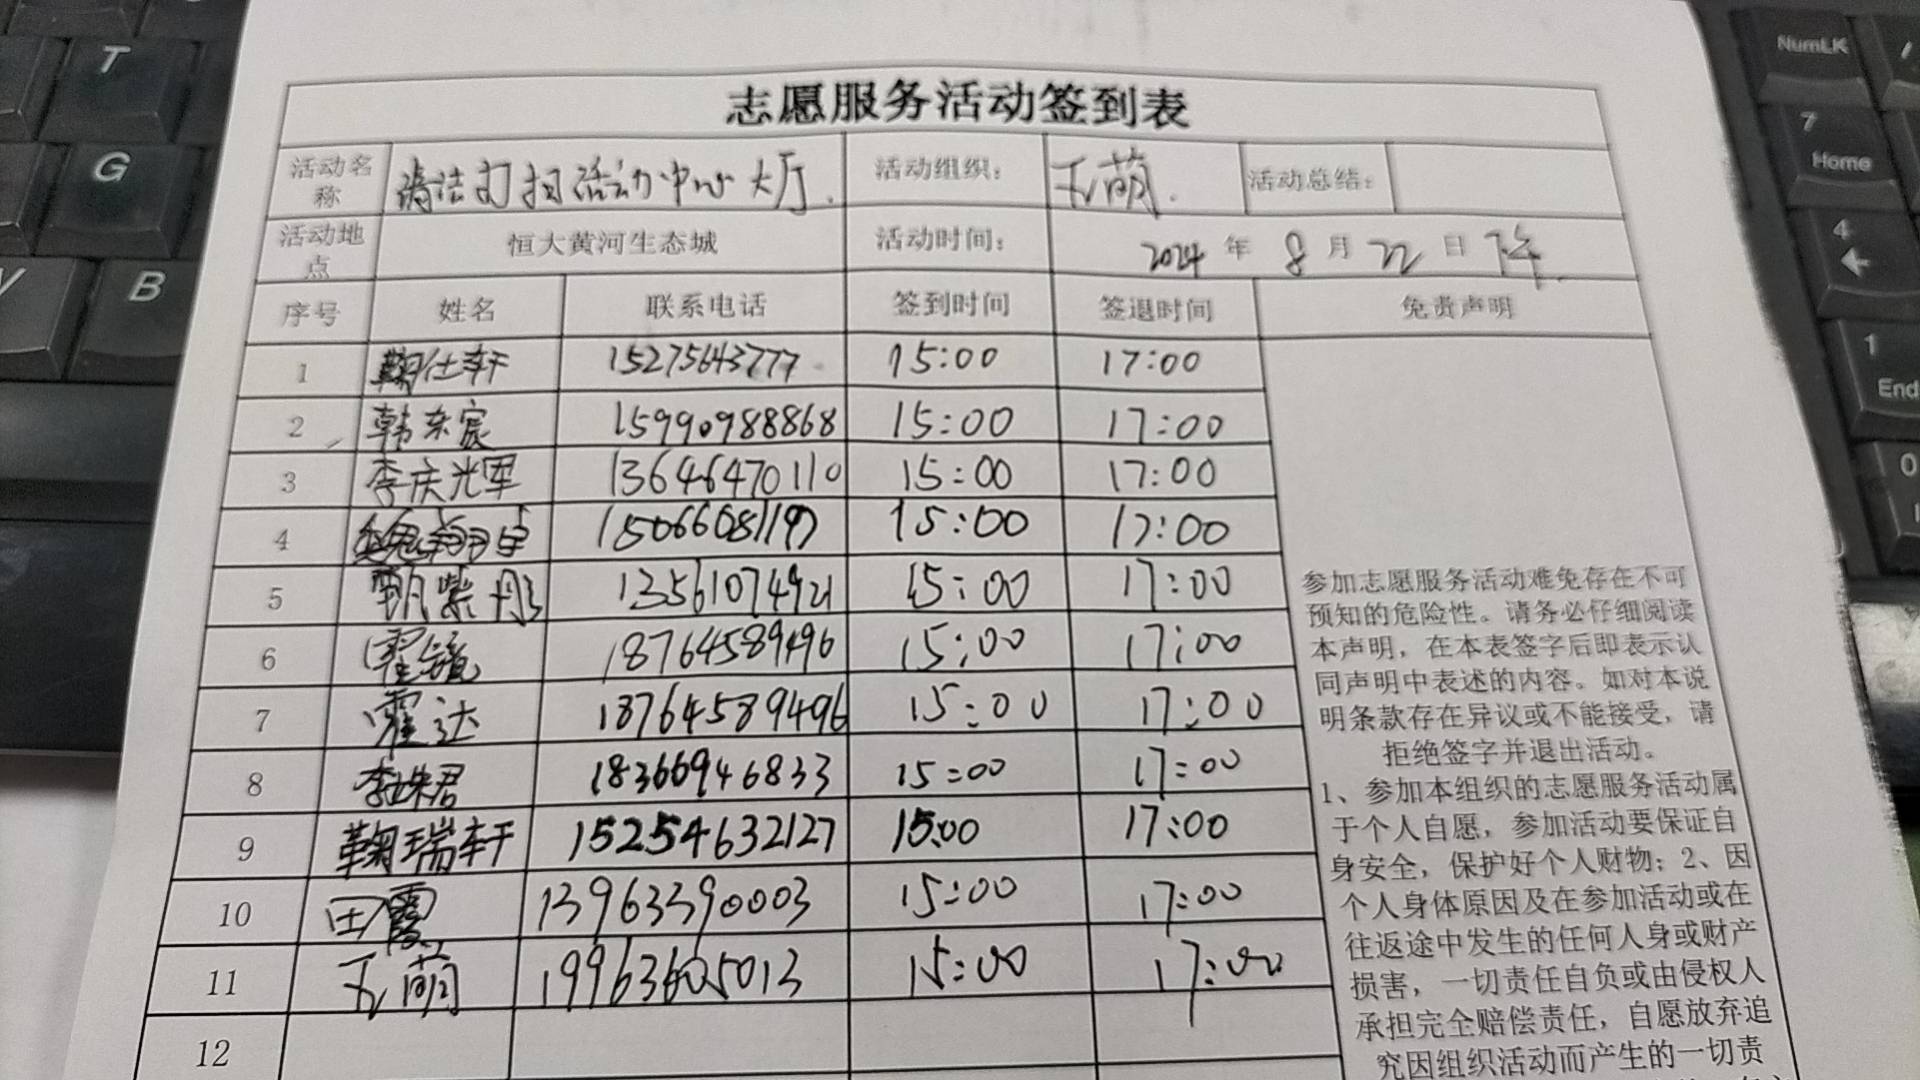 T
G
B
V
NumLK
7
Home
4
1
End
0
志愿服务活动签到表
活动名称 清洁打扫活动中心大厅. 活动组织: 王萌. 活动总结:
活动地点 恒大黄河生态城 活动时间: 2024 年 8 月 22 日
序号 姓名 联系电话 签到时间 签退时间 免责声明
1 鞠仕轩 15275643777 15:00 17:00
2 韩东宸 15990988868 15:00 17:00
3 李庆光军 13646470110 15:00 17:00
4 15066081197 15:00 17:00
5 紫彤 13561074921 15:00 17:00
6 霍毓 18764589496 15:00 17:00
7 霍达 18764589496 15:00 17:00
8 李姝君 18366946833 15:00 17:00
9 鞠瑞轩 15254632127 15:00 17:00
10 田霞 13963390003 15:00 17:00
11 王萌 19963605013 15:00 17:00
12
参加志愿服务活动难免存在不可
预知的危险性。请务必仔细阅读
本声明，在本表签字后即表示认
同声明中表述的内容。如对本说
明条款存在异议或不能接受，请
拒绝签字并退出活动。
1、参加本组织的志愿服务活动属
于个人自愿，参加活动要保证自
身安全，保护好个人财物；2、因
个人身体原因及在参加活动或在
往返途中发生的任何人身或财产
损害，一切责任自负或由侵权人
承担完全赔偿责任，自愿放弃追
究因组织活动而产生的一切责